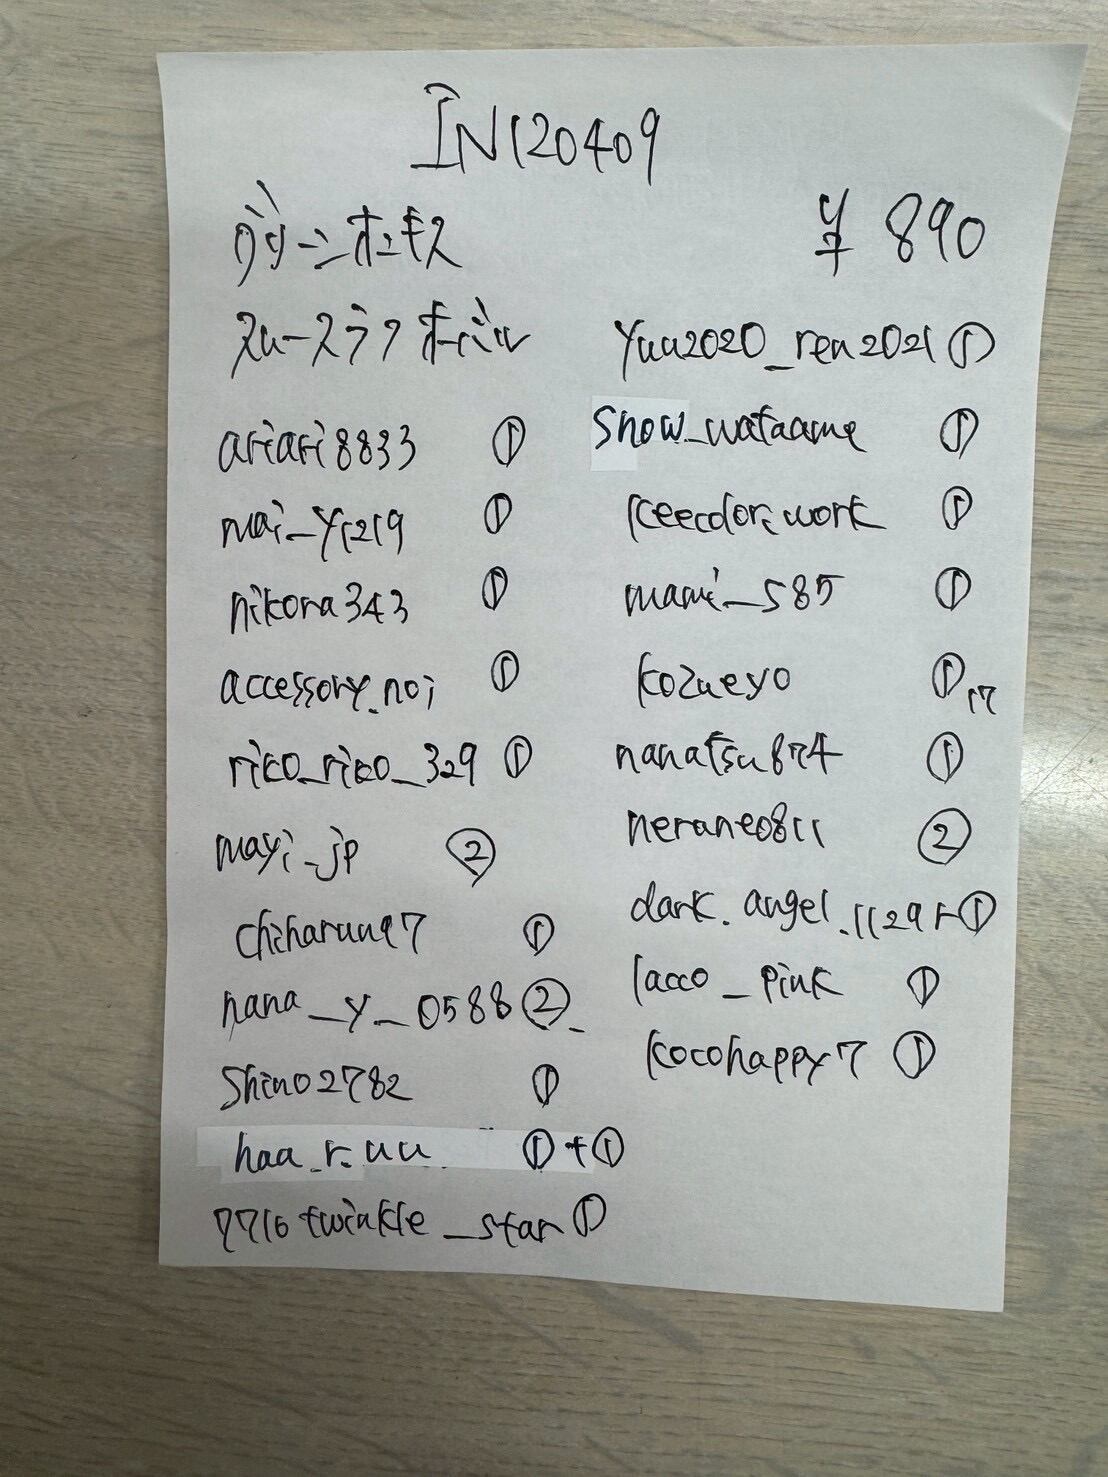 IN120409
グリーンオニキス
¥ 890
スムースラフオーバル
ariari8833 ①
mai_y1219 ①
nikora343 ①
accessory_noi ①
rico_rico_329 ①
mayi_jp ②
chiharun97 ①
nana_y_0588 ②
Shino2782 ①
haa_r_uu ①+①
7716twinkle_star ①
yuu2020_ren2021 ①
Snow_wataame ①
mami_585 ①
kozueyo ① 17
nanatsu874 ①
nerane0811 ②
lacco_pink ①
kocohappy7 ①